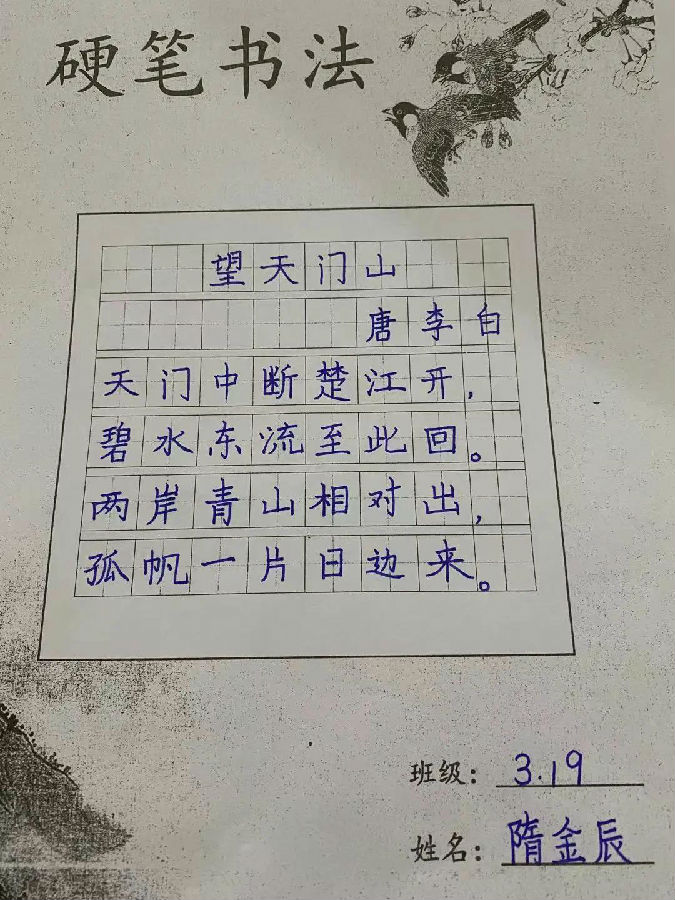 硬笔书法
望天门山
唐李白
天门中断楚江开，
碧水东流至此回。
两岸青山相对出，
孤帆一片日边来。
班级：3.19
姓名：隋金辰